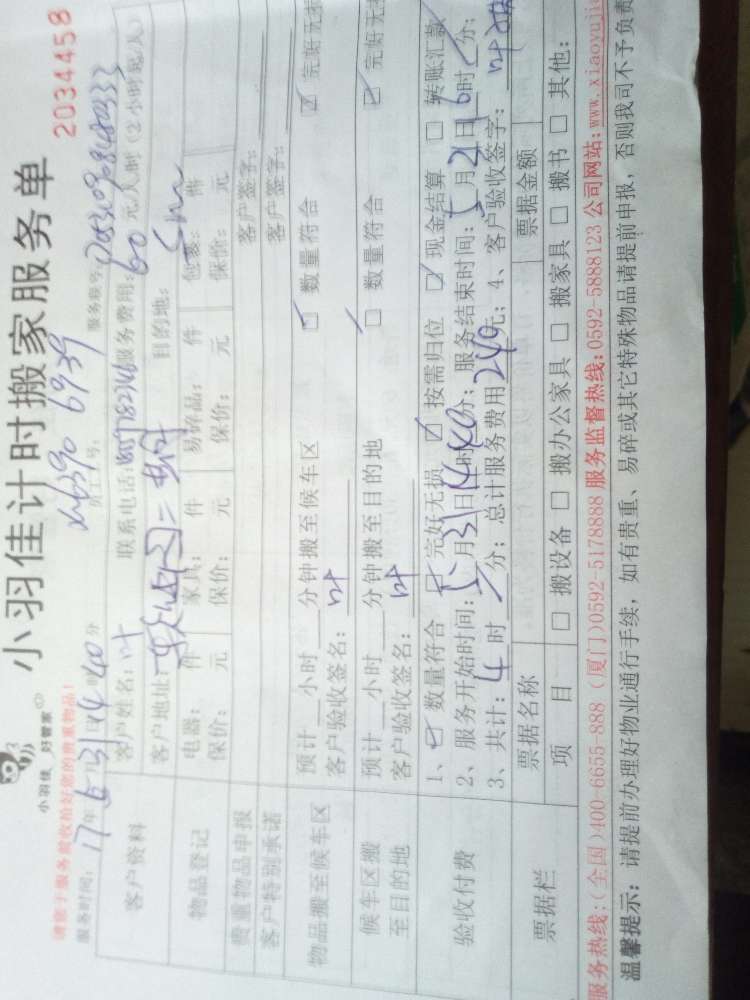 小羽佳 好管家
小羽佳计时搬家服务单
2034458
请您于服务前收拾好您的贵重物品!
服务时间: 17年5月31日14时40分
员工工号:
服务账号:
客户资料
客户姓名: 叶 联系电话: 服务费用: 60元/人/时 (2小时起/人)
客户地址: 目的地:
物品登记
电器: 件 家具: 件 易碎品: 件 包裹: 件
保价: 元 保价: 元 保价: 元 保价: 元
贵重物品申报 客户签字:
客户特别承诺 客户签字:
物品搬至候车区
预计 小时 分钟搬至候车区 ☑ 数量符合 ☑ 完好无损
客户验收签名: 叶
候车区搬至目的地
预计 小时 分钟搬至目的地 ☐ 数量符合 ☑ 完好无损
客户验收签名: 叶
验收付费
1、☑ 数量符合 ☑ 完好无损 ☑ 按需归位 ☑ 现金结算 ☐ 转账汇款
2、服务开始时间: 5月31日14时40分; 服务结束时间: 5月21日16时 分;
3、共计: 4时 分; 总计服务费用240元; 4、客户验收签字: 叶
票据栏
票据名称 票据金额
项目 ☐ 搬设备 ☐ 搬办公家具 ☐ 搬家具 ☐ 搬书 ☐ 其他:
服务热线:(全国)400-6655-888 (厦门)0592-5178888 服务监督热线:0592-5888123 公司网站:www.xiaoyujia
温馨提示: 请提前办理好物业通行手续, 如有贵重、易碎或其它特殊物品请提前申报, 否则我司不予负责